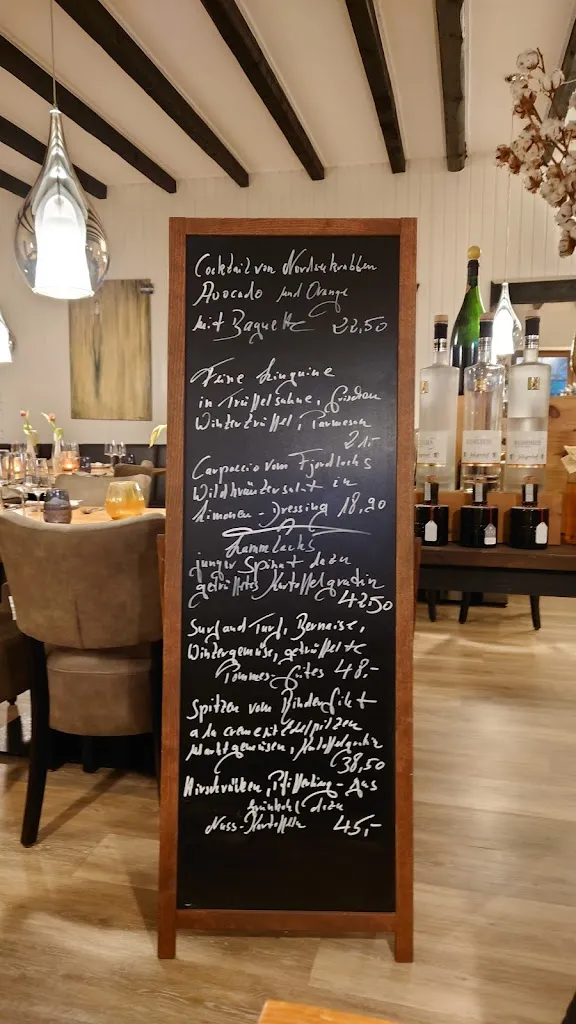 Cocktail von Nordseekrabben
Avocado und Orange
mit Baguette 22,50
Feine Linguine
in Trüffelsahne, frischen
Wintertrüffel, Parmesan
21,-
Carpaccio vom Fjordlachs
Wildkräutersalat in
Limonen-Dressing 18,90
Lammlachs
junger Spinat dazu
getrüffeltes Kartoffelgratin
42,50
Surf and Turf, Bernaise,
Wintergemüse, getrüffelte
Pommes-frites 48,-
Spitzen vom Rinderfilet
a la creme mit Edelpilzen
Marktgemüsen, Kartoffelgratin
38,50
Hirschrücken, Pfifferling-
Grünkohl dazu
Nuss-Kartoffeln 45,-